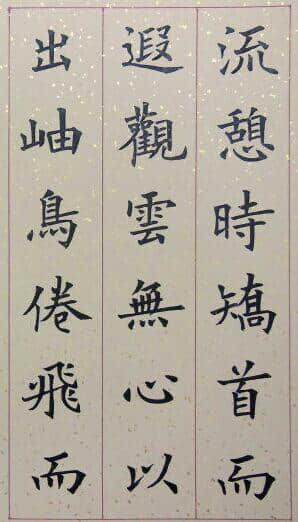 流憩時矯首而
遐觀雲無心以
出岫鳥倦飛而